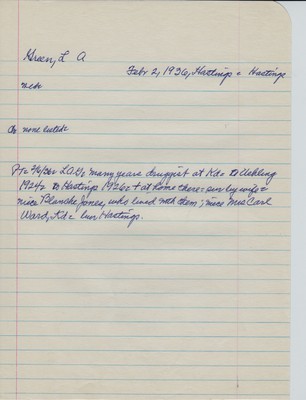 Green, L A
Febr 2, 1936, Hastings = Hastings
med=
Ch none listed=
many years druggist at to Uehling
1924= to Hastings 1926= + at home there= sur by wife=
niece Blanche Jones, who lived with them; niece Mrs Carl
Ward, bur Hastings.